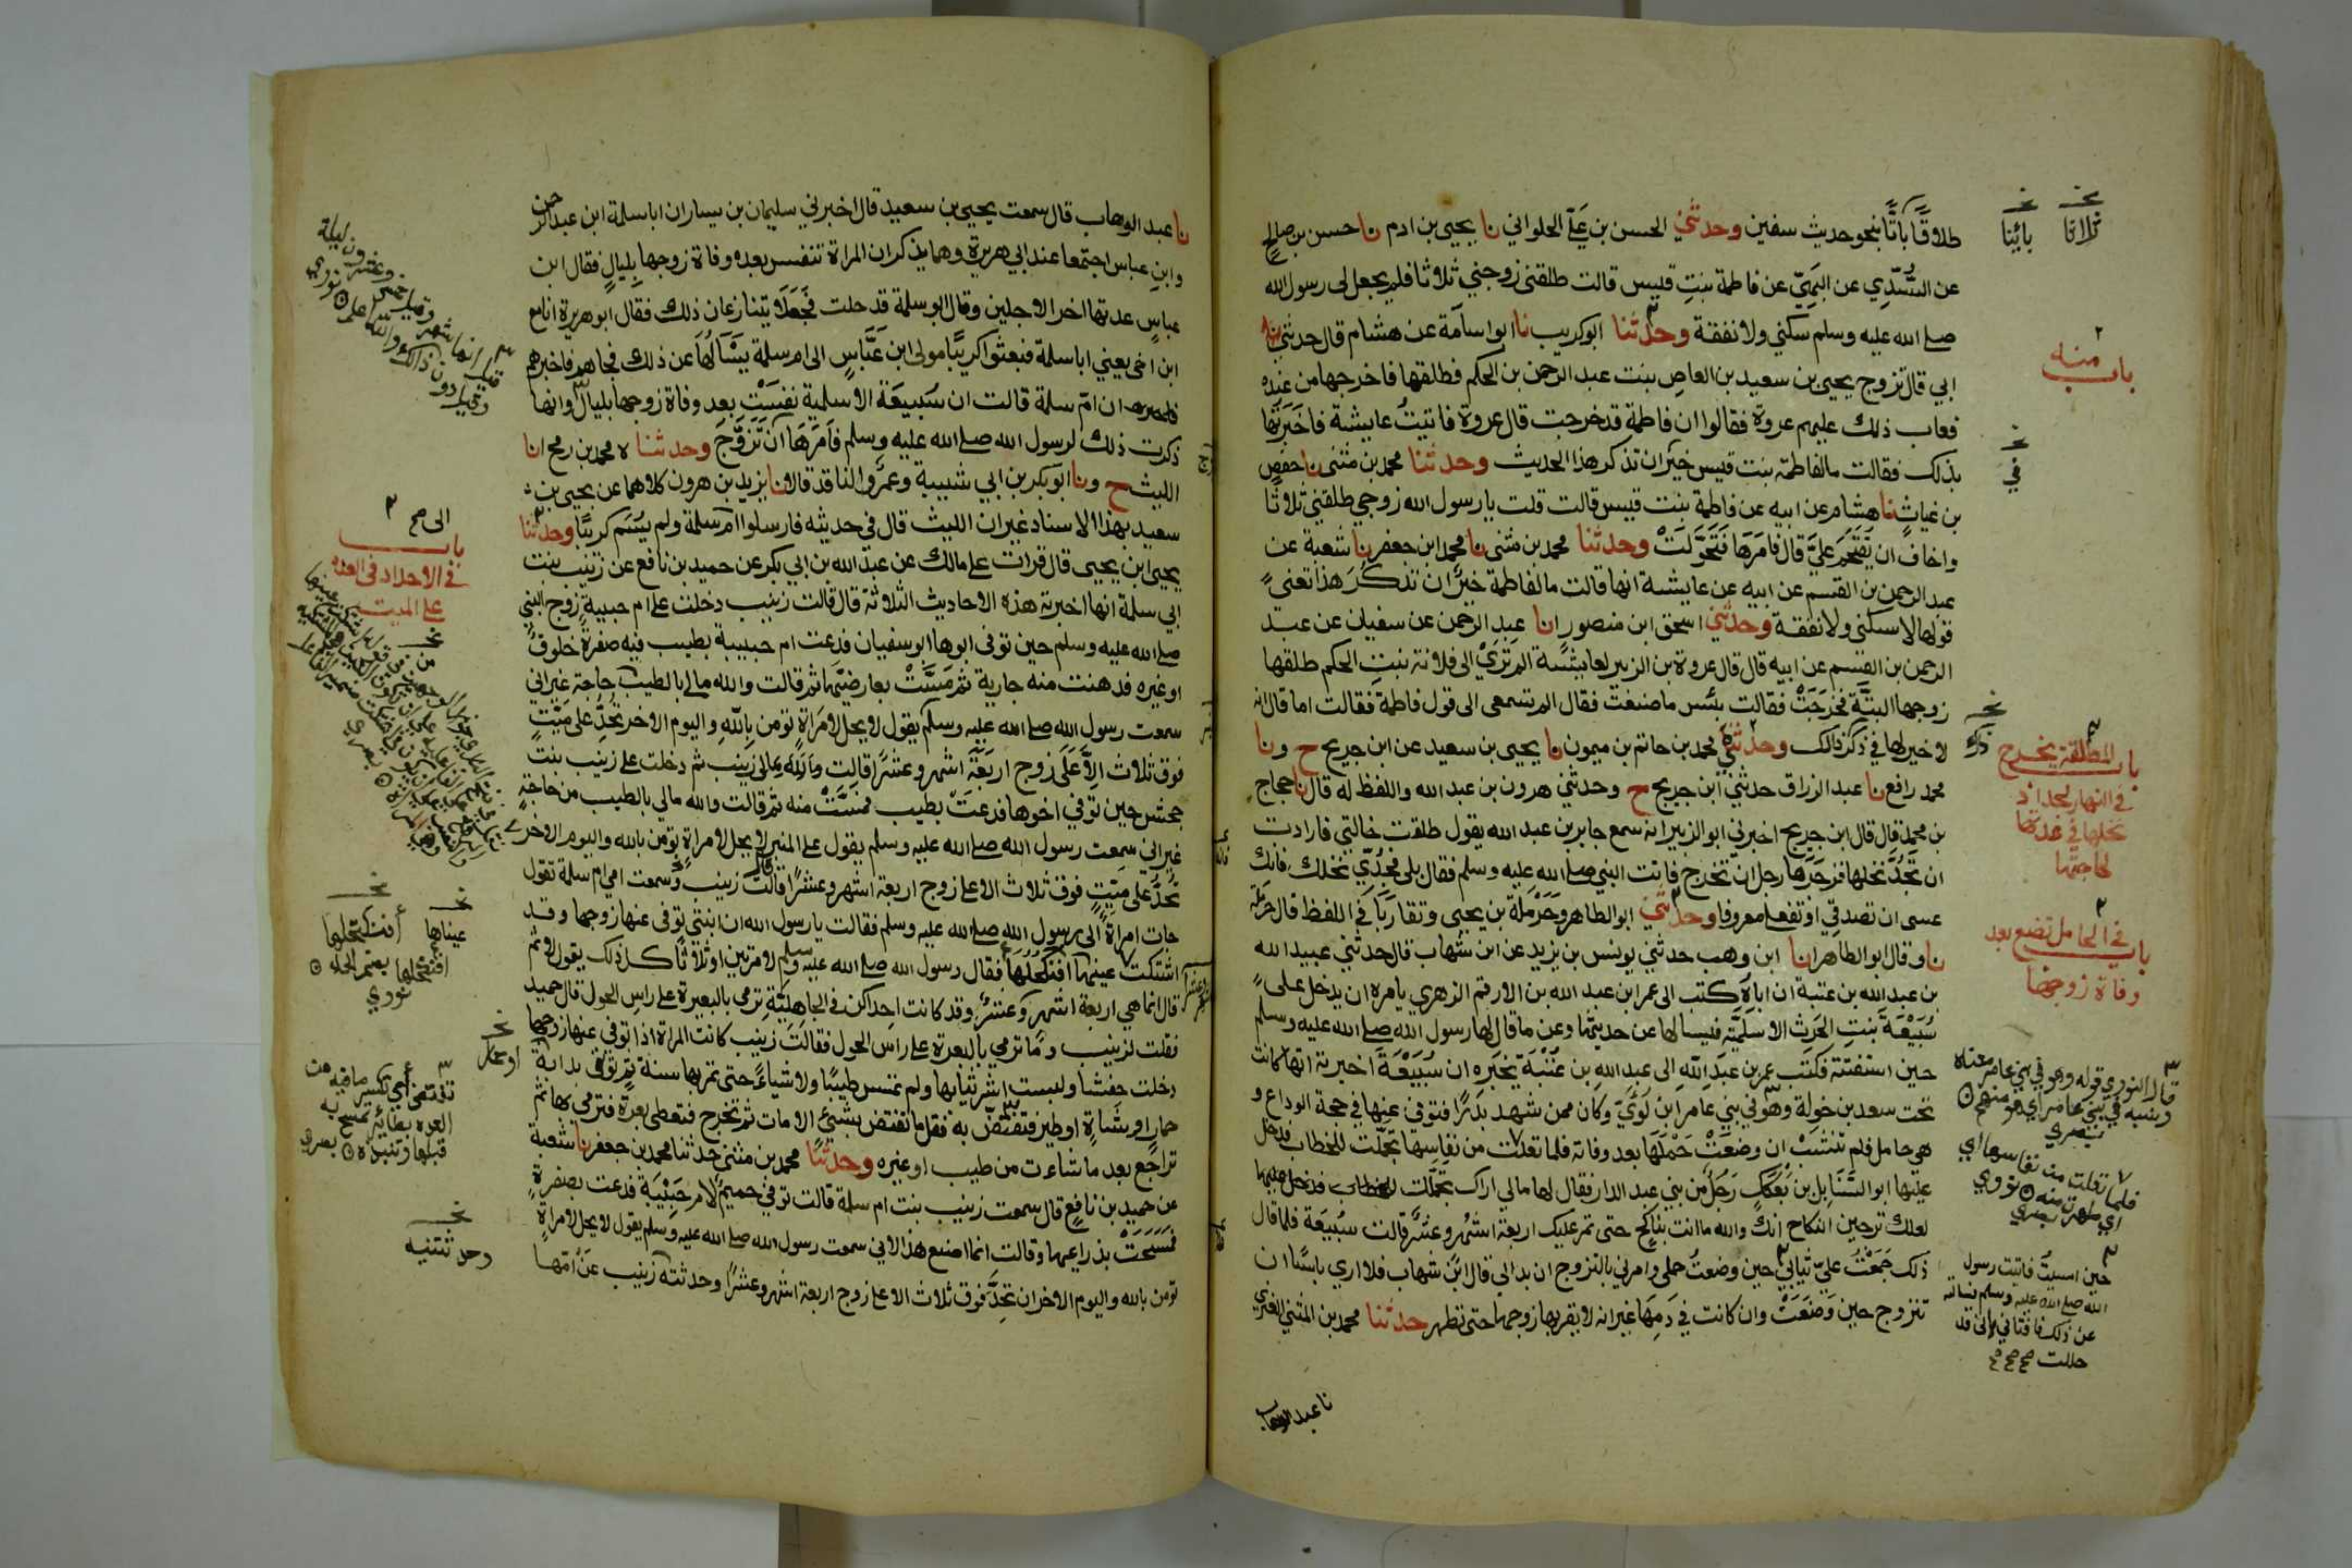 طلاقًا باتًّا بنحو حديث سفين وحدثني الحسن بن علي الحلواني نا يحيى بن ادم نا حسن بن صالح
عن السُّدِّي عن البَهِيّ عن فاطمة بنتِ قيس قالت طلقنى زوجي ثلاثا فلم يجعل لى رسول الله
صلى الله عليه وسلم سكنى ولا نفقة وحدثنا ابو كريب نا ابو اسامة عن هشام قال حدثني
ابي قال تزوج يحيى بن سعيد بن العاص بنت عبد الرحمن بن الحكم فطلقها فاخرجها من عنده
فعاب ذلك عليهم عروة فقالوا ان فاطمة قد خرجت قال عروة فاتيتُ عايشة فاخبرتها
بذلك فقالت ما لفاطمة بنت قيس خير ان تذكر هذا الحديث وحدثنا محمد بن مثنى نا حفص
بن غياث نا هشام عن ابيه عن فاطمة بنت قيس قالت قلت يا رسول الله زوجي طلقني ثلاثًا
واخاف ان يُقتحم عليَّ قال فامرها فتحوّلتْ وحدثنا محمد بن مثنى نا محمد ابن جعفر نا شعبة عن
عبد الرحمن بن القسم عن ابيه عن عايشة انها قالت ما لفاطمة خيرٌ ان تذكر هذا تعني
قولها لا سكنى ولا نفقة وحدثني اسحق ابن منصور انا عبد الرحمن عن سفيان عن عبد
الرحمن بن القسم عن ابيه قال قال عروة بن الزبير لعايشة الم تَرَيْ الى فلانة بنتِ الحكم طلقها
زوجها البتَّة فخرجتْ فقالت بئس ما صنعتْ فقال الم تسمعى الى قول فاطمة فقالت اما انه
لا خير لها في ذكر ذالك وحدثني محمد بن حاتم بن ميمون نا يحيى بن سعيد عن ابن جريج ح ونا
محمد رافع نا عبد الرزاق حدثني ابن جريج ح وحدثني هرون بن عبد الله واللفظ له قال نا حجاج
بن محمد قال قال ابن جريج اخبرني ابو الزبير انه سمع جابر بن عبد الله يقول طلقت خالتي فارادت
ان تَجُدَّ نخلها فزجرها رجل ان تخرج فاتت النبي صلى الله عليه وسلم فقال بلى فجُدِّي نخلك فانك
عسى ان تصدقي او تفعلي معروفا وحدثني ابو الطاهر وحَرْملة بن يحيى وتقاربا في اللفظ قال حرملة
نا وقال ابو الطاهر انا ابن وهب حدثني يونس بن يزيد عن ابن شهاب قال حدثني عبيد الله
بن عبد الله بن عتبة ان اباه كتب الى عمر ابن عبد الله بن الارقم الزهري يامره ان يدخل على
سُبَيْعَةَ بنتِ الحَرث الاسلميّة فيسالها عن حديثها وعن ما قال لها رسول الله صلى الله عليه وسلم
حين استفتته فكتب عمر بن عبد الله الى عبد الله بن عُتْبَة يخبره ان سُبَيْعَة اخبرته انها كانت
تحت سعد بن خولة وهو في بني عامر ابن لُؤَيّ وكان ممن شهد بدرًا فتوفي عنها في حجة الوداع و
هي حامل فلم تنشبْ ان وضعتْ حَمْلَها بعد وفاته فلما تعلت من نفاسها تجمّلت للخطاب فدخل
عليها ابو السَّنَابِل بن بَعْكَكٍ رَجُلٌ من بني عبد الدار فقال لها مالي اراك تجمّلت
لعلك ترجين النكاح انك والله ما انت بناكح حتى تمر عليك اربعة اشهر وعشر قالت سُبيعَة فلما قال
ذلك جَمَعْتُ عليَّ ثيابي حين وضعتُ حملى وامرني بالتزوج ان بدا لي قال ابن شهاب فلا ارى باسًا ان
تتزوج حين وَضَعَتْ وان كانت في دَمِهَا غير انه لا يقربها زوجها حتى تطهر حدثنا محمد بن المثنى العنزي
نا عبد الوهاب
ثلاثا
بائنا
باب منه
في
ذكره
باب المطلقة تخرج
في النهار لجداد
نخلها في عدتها
لحاجتها
باب في الحامل تضع بعد
وفاة زوجها
قال النووي قوله وهو في بني عامر معناه
فلما تعلت من نفاسها اي
اي طهرت منه نووي
حين امسيتُ فاتيت رسول
الله صلى الله عليه وسلم فسالته
عن ذلك فافتاني باني قد
حللت
نا عبد الوهاب قال سمعت يحيى بن سعيد قال اخبرني سليمان بن يسار ان ابا سلمة ابن عبد الرحمن
وابن عباس اجتمعا عند ابي هريرة وهما يذكران المراة تنفس بعد وفاة زوجها بليالٍ فقال ابن
عباسٍ عدتها اخر الاجلين وقال ابو سلمة قد حلت فجعلا يتنازعان ذلك فقال ابو هريرة انا مع
ابن اخى يعني ابا سلمة فبعثوا كريبًا مولى ابن عباسٍ الى ام سلمة يسألها عن ذلك فجاهم فاخبرهم
ان ام سلمة قالت ان سُبيعَة الاسلمية نفسَتْ بعد وفاة زوجها بليال وانها
ذكرت ذلك لرسول الله صلى الله عليه وسلم فامرها ان تَزَوَّجَ وحدثنا ه محمد بن رمح انا
الليث ح ونا ابو بكر بن ابي شيبة وعمرو الناقد قالا نا يزيد بن هرون كلاهما عن يحيى بن
سعيد بهذا الاسناد غير ان الليث قال في حديثه فارسلوا ام سلمة ولم يُسَم كريبًا وحدثنا
يحيى ابن يحيى قال قرات على مالك عن عبد الله بن ابي بكر عن حميد بن نافع عن زينب بنت
ابي سلمة انها اخبرته هذه الاحاديث الثلاثة قال قالت زينب دخلت على ام حبيبة زوج النبي
صلى الله عليه وسلم حين توفى ابوها ابو سفيان فدعت ام حبيبة بطيب فيه صفرةٌ خلوقٌ
او غيره فدهنت منه جارية ثم مَسَّتْ بعارضيها ثم قالت والله مالي بالطيب حاجة غير اني
سمعت رسول الله صلى الله عليه وسلم يقول لا يحل لامرَاةٍ تومن بالله واليوم الاخر تُحِدُّ على مَيّتٍ
فوق ثلاث الا على زوج اربعة اشهر وعشرًا قالت زينب ثم دخلت على زينب بنت
جحش حين توفي اخوها فدعتْ بطيب فمسّتْ منه ثم قالت والله مالي بالطيب من حاجةٍ
غير اني سمعت رسول الله صلى الله عليه وسلم يقول على المنبر لا يحل لامراةٍ تؤمن بالله واليوم الاخر
تُحدّ على ميّتٍ فوق ثلاث الا على زوج اربعة اشهر وعشرًا قالت زينب وسمعت امي ام سلمة تقول
جات امراة الى رسول الله صلى الله عليه وسلم فقالت يا رسول الله ان ابنتى توفى عنها زوجها وقد
اشتكت عينها افنكحُلُها فقال رسول الله صلى الله عليه وسلم لا مرتين او ثلاثا كل ذلك يقول لا ثم
قال انما هي اربعة اشهر وعشرٌ وقد كانت احداكن في الجاهليّة ترمي بالبعرة على راس الحول قال حميد
فقلت لزينب وما ترمي بالبعرة على راس الحول فقالت زينب كانت المراة اذا توفى عنها زوجها
دخلت حفشا ولبست شر ثيابها ولم تمسس طيبًا ولا شياءً حتى تمر بها سنة ثم توتى بدابة
حمار او شاةٍ او طيرٍ فتفتضّ به فقل ما تفتض بشئ الا مات ثم تخرج فتعطى بعرة فترمي بها ثم
تراجع بعد ما شاءت من طيب او غيره وحدثنا محمد بن مثنى حدثنا محمد بن جعفر نا شعبة
عن حميد بن نافع قال سمعت زينب بنت ام سلمة قالت توفي حميم لام حَبِيْبَة فدعت بصفرةٍ
فمسحتْ بذراعيها وقالت انما اصنع هذا لاني سمعت رسول الله صلى الله عليه وسلم يقول لا يحل لامراةٍ
تومن بالله واليوم الاخر ان تحِدَّ فوق ثلاث الا على زوج اربعة اشهر وعشرًا وحدثته زينب عن امّها
باب
في الاحداد في العدة
على الميت
عيناها
افنكتحلها
افنكحلها بضم الحاء
نووي
وحدثتنيه